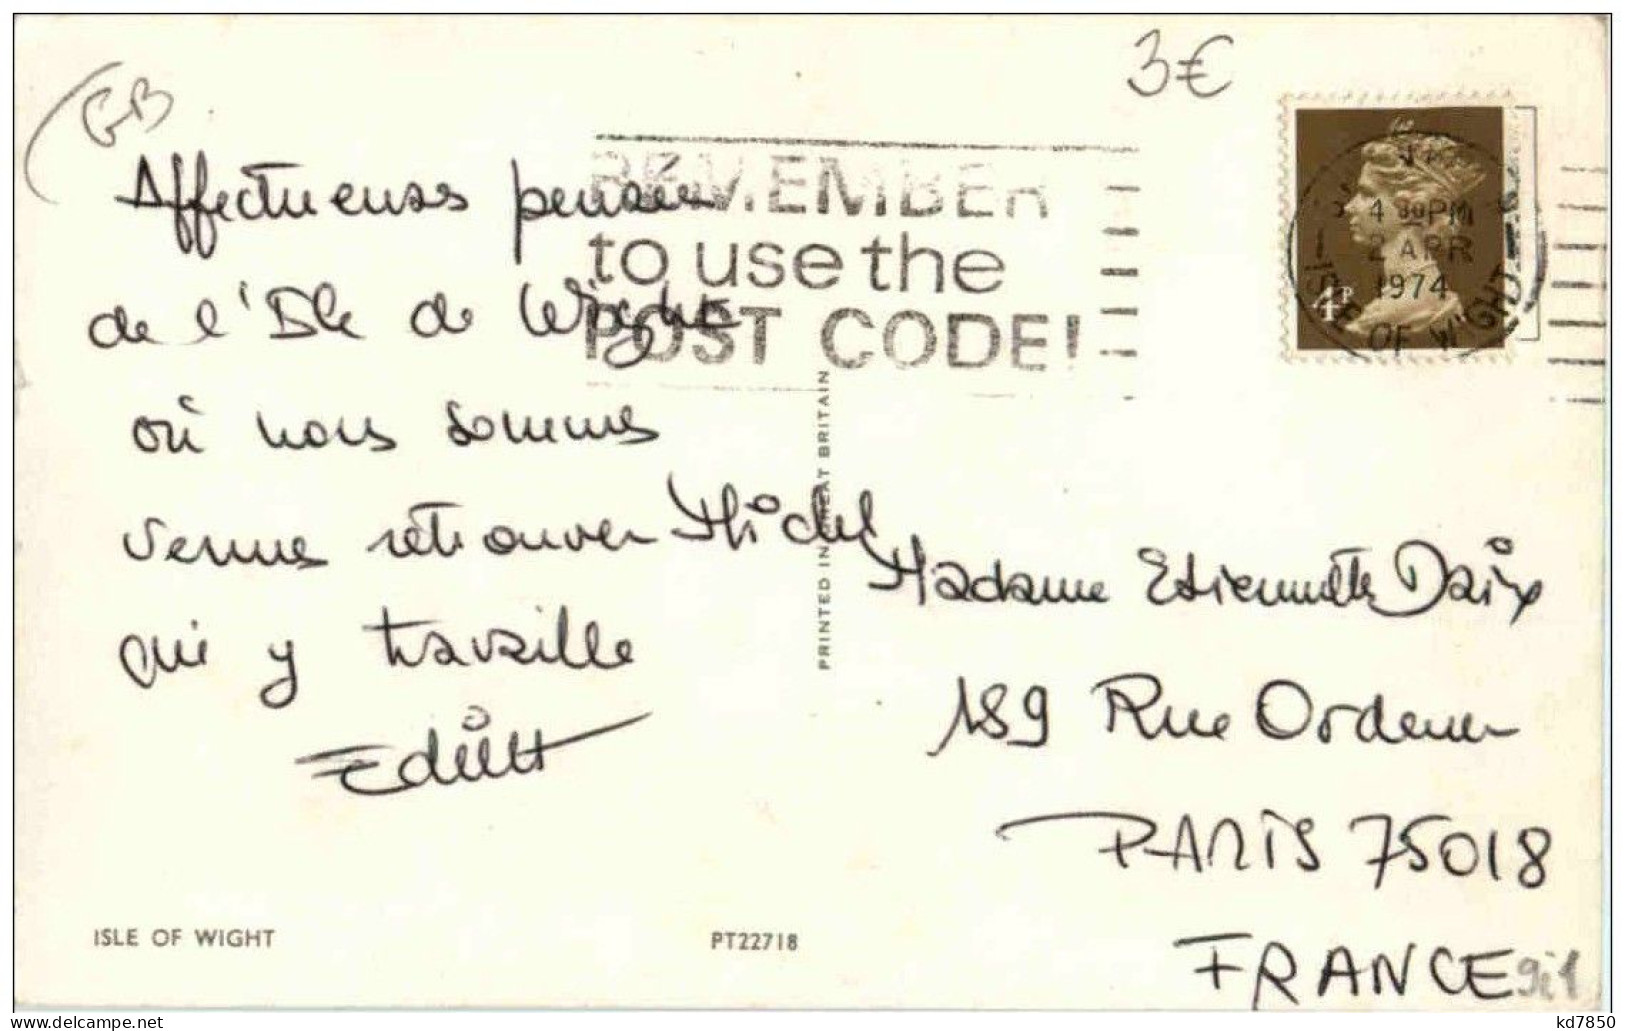 3€
GB
REMEMBER
to use the
POST CODE!
4 30PM
2 APR
1974
ISLE OF WIGHT
4P
Affectueuses pensées
de l'Isle de Wight
où nous sommes
venues retrouver Michel
qui y travaille
Edith
PRINTED IN GREAT BRITAIN
Madame Etiennette Daix
189 Rue Ordener
PARIS 75018
FRANCE
ISLE OF WIGHT
PT22718
kd7850